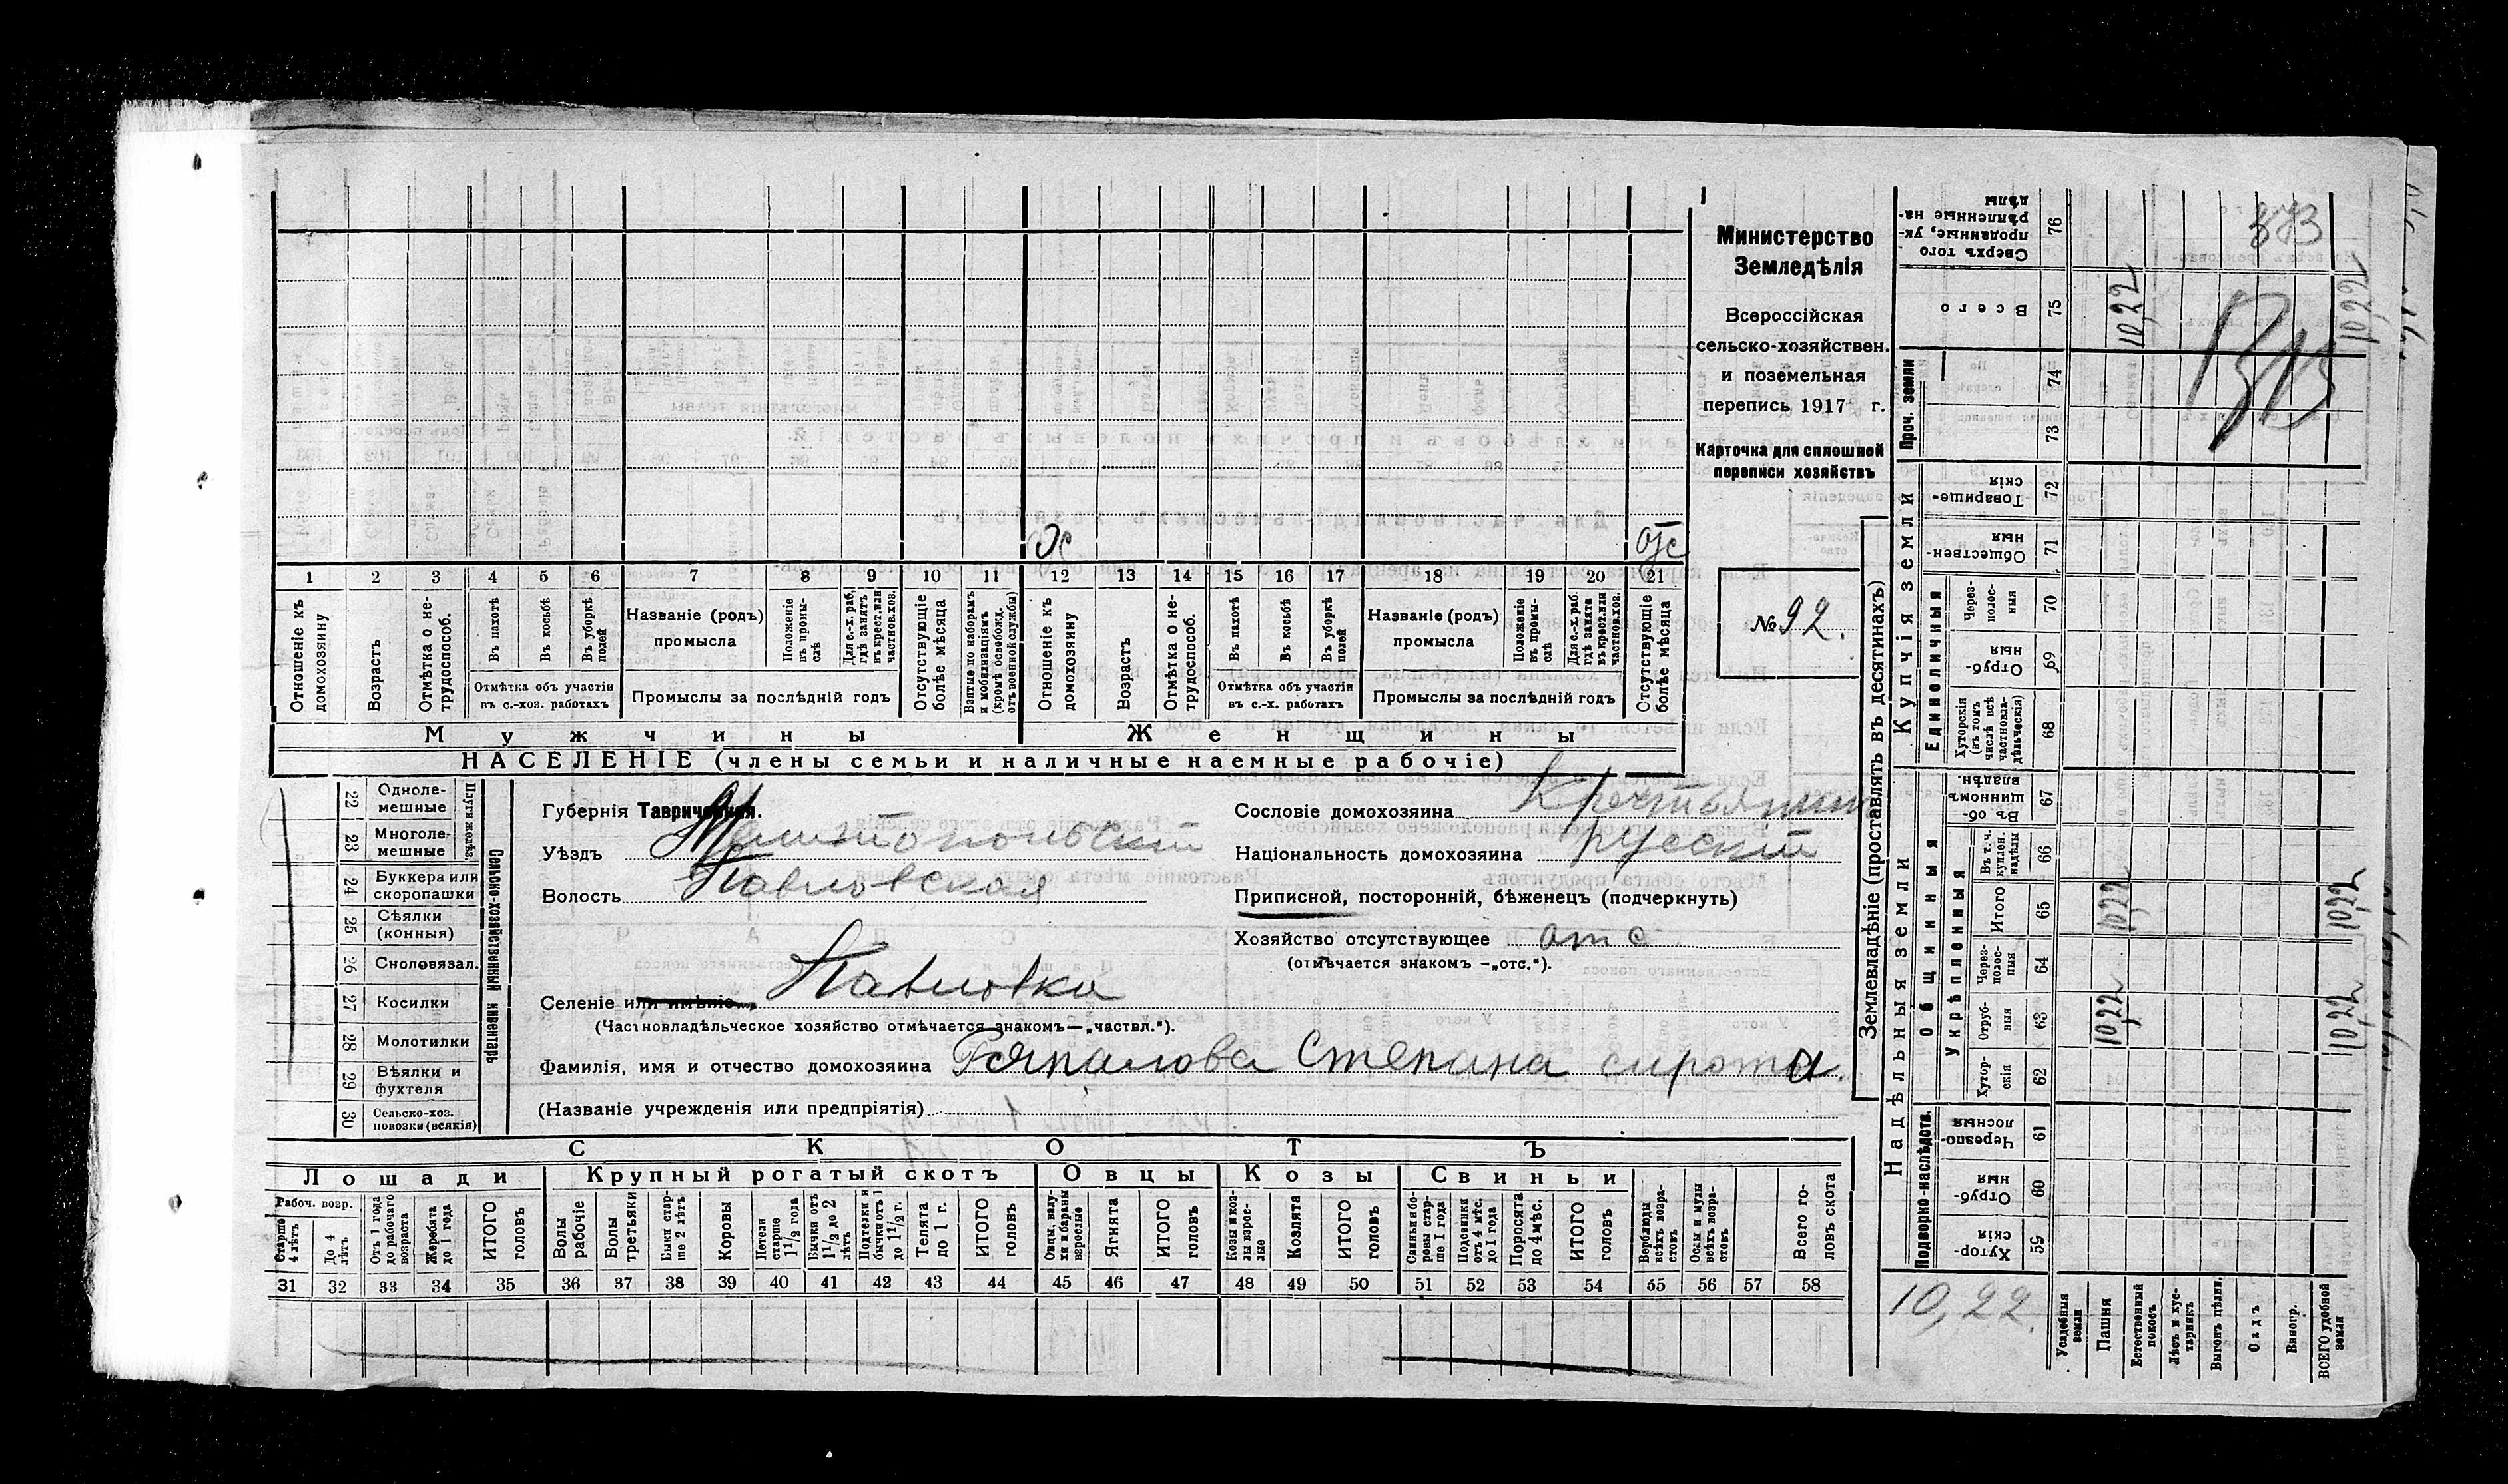 Министерство
Земледѣлія
Всероссійская
сельско-хозяйствен.
и поземельная
перепись 1917 г.
Карточка для сплошной
переписи хозяйствъ
№ 92.
1 2 3 4 5 6 7 8 9 10 11 12 13 14 15 16 17 18 19 20 21
Отношеніе къ домохозяину
Возрастъ
Отмѣтка о не-трудоспособ.
Въ пахотѣ
Въ косьбѣ
Въ уборкѣ полей
Отмѣтка объ участіи въ с.-хоз. работахъ
Названіе (родъ) промысла
Положеніе въ промы-слѣ
Для с.-х. раб. гдѣ занятъ въ крест. или частнов. хоз.
Промыслы за послѣдній годъ
Отсутствующіе болѣе мѣсяца
Взятые по наборамъ и мобилизаціямъ (кромѣ освобожд. отъ военной службы)
Отношеніе къ домохозяину
Возрастъ
Отмѣтка о не-трудоспособ.
Въ пахотѣ
Въ косьбѣ
Въ уборкѣ полей
Отмѣтка объ участіи въ с.-х. работахъ
Названіе (родъ) промысла
Положеніе въ промы-слѣ
Для с.-х. раб. гдѣ занята въ крест. или частнов. хоз.
Промыслы за послѣдній годъ
Отсутствующіе болѣе мѣсяца
Мужчины Женщины
НАСЕЛЕНІЕ (члены семьи и наличные наемные рабочіе)
22 Одноле-мешные
23 Многоле-мешные
Плуги желѣз.
24 Буккера или скоропашки
25 Сѣялки (конныя)
26 Сноповязал.
27 Косилки
28 Молотилки
29 Вѣялки и фухтеля
30 Сельско-хоз. повозки (всякія)
Сельско-хозяйственный инвентарь
Губернія Таврическая.
Уѣздъ Мелитопольскій
Волость Павловская
Селеніе или имѣніе Павловка
(Частновладѣльческое хозяйство отмѣчается знакомъ—„частвл.“).
Фамилія, имя и отчество домохозяина Степана сирота.
(Названіе учрежденія или предпріятія)
Сословіе домохозяина Крестьянин
Національность домохозяина русскій
Приписной, посторонній, бѣженецъ (подчеркнуть)
Хозяйство отсутствующее отс
(отмѣчается знакомъ —„отс.“).
СКОТЪ
Лошади Крупный рогатый скотъ Овцы Козы Свиньи
Рабоч. возр.
Старше 4 лѣтъ
До 4 лѣтъ
Отъ 1 года до рабочаго возраста
Жеребята до 1 года
ИТОГО головъ
Волы рабочіе
Волы третьяки
Быки стар-ше 2 лѣтъ
Коровы
Нетели старше 1 1/2 года
Бычки отъ 1 1/2 до 2 лѣтъ
Подтелки и бычки отъ 1 до 1 1/2 г.
Телята до 1 г.
ИТОГО головъ
Овцы, валу-хи и бараны взрослые
Ягнята
ИТОГО головъ
Козы и коз-лы взрос-лые
Козлята
ИТОГО головъ
Свиньи и бо-ровы стар-ше 1 года
Подсвинки отъ 4 мѣс. до 1 года
Поросята до 4 мѣс.
ИТОГО головъ
Верблюды всѣхъ возра-стовъ
Ослы и мулы всѣхъ возра-стовъ
Всего го-ловъ скота
31 32 33 34 35 36 37 38 39 40 41 42 43 44 45 46 47 48 49 50 51 52 53 54 55 56 57 58
Землевладѣніе (проставлять въ десятинахъ)
Надѣльныя земли
Купчія земли
Проч. земли
Подворно-наслѣдств.
Общинныя
Укрѣпленныя
Единоличныя
Хутор-скія 59
Отруб-ныя 60
Черезпо-лосныя 61
Хутор-скія 62
Отруб-ныя 63
Через-полос-ныя 64
Итого 65
Въ т. ч. куплен. надѣлы 66
Въ об-щинномъ владѣн. 67
Хуторскія (въ томъ числѣ всѣ частновла-дѣльческія) 68
Отруб-ныя 69
Через-полос-ныя 70
Обществен-ныя 71
Товарище-скія 72
73
74
Всего 75
Сверхъ того проданные, ук-рѣпленные на-дѣлы 76
10,22.
Усадебныя земли
Пашня 10,22 10,22 10,22
Естественный покосъ
Лѣсъ и кус-тарникъ
Выгонъ цѣлин.
Садъ
Виногр.
ВСЕГО удобной земли 10,22 10,22 10,22